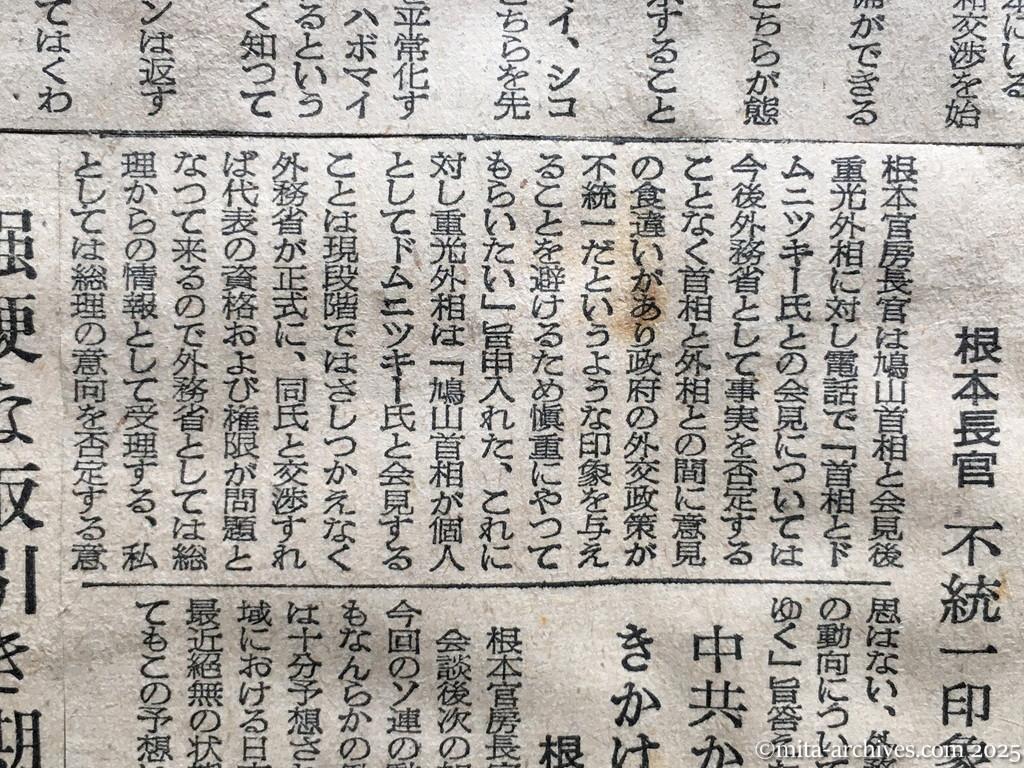 本にいる
相交渉を始
備ができる
こちらが態
示すること
イ、シコ
ちらを先
と平常化す
ハボマイ
るという
く知つて
ンは返す
てはくわ
根本長官 不統一印象
根本官房長官は鳩山首相と会見後
重光外相に対し電話で「首相とド
ムニツキー氏との会見については
今後外務省として事実を否定する
ことなく首相と外相との間に意見
の食違いがあり政府の外交政策が
不統一だというような印象を与え
ることを避けるため慎重にやつて
もらいたい」旨申入れた、これに
対し重光外相は「鳩山首相が個人
としてドムニツキー氏と会見する
ことは現段階ではさしつかえなく
外務省が正式に、同氏と交渉すれ
ば代表の資格および権限が問題と
なつて来るので外務省としては総
理からの情報として受理する、私
としては総理の意向を否定する意
思はない、
の動向につい
ゆく」旨答え
中共か
きかけ
根
根本官房長
会談後次の
今回のソ連の
もなんらかの
は十分予想さ
域における日
最近絶無の状
てもこの予想
強硬な取引き期
©mita-archives.com 2025